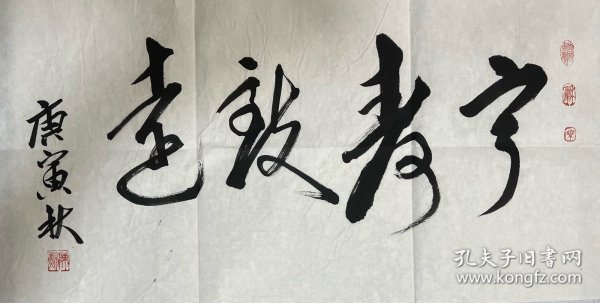 宁静致远
庚寅秋
孔夫子旧书网
www.kongfz.com